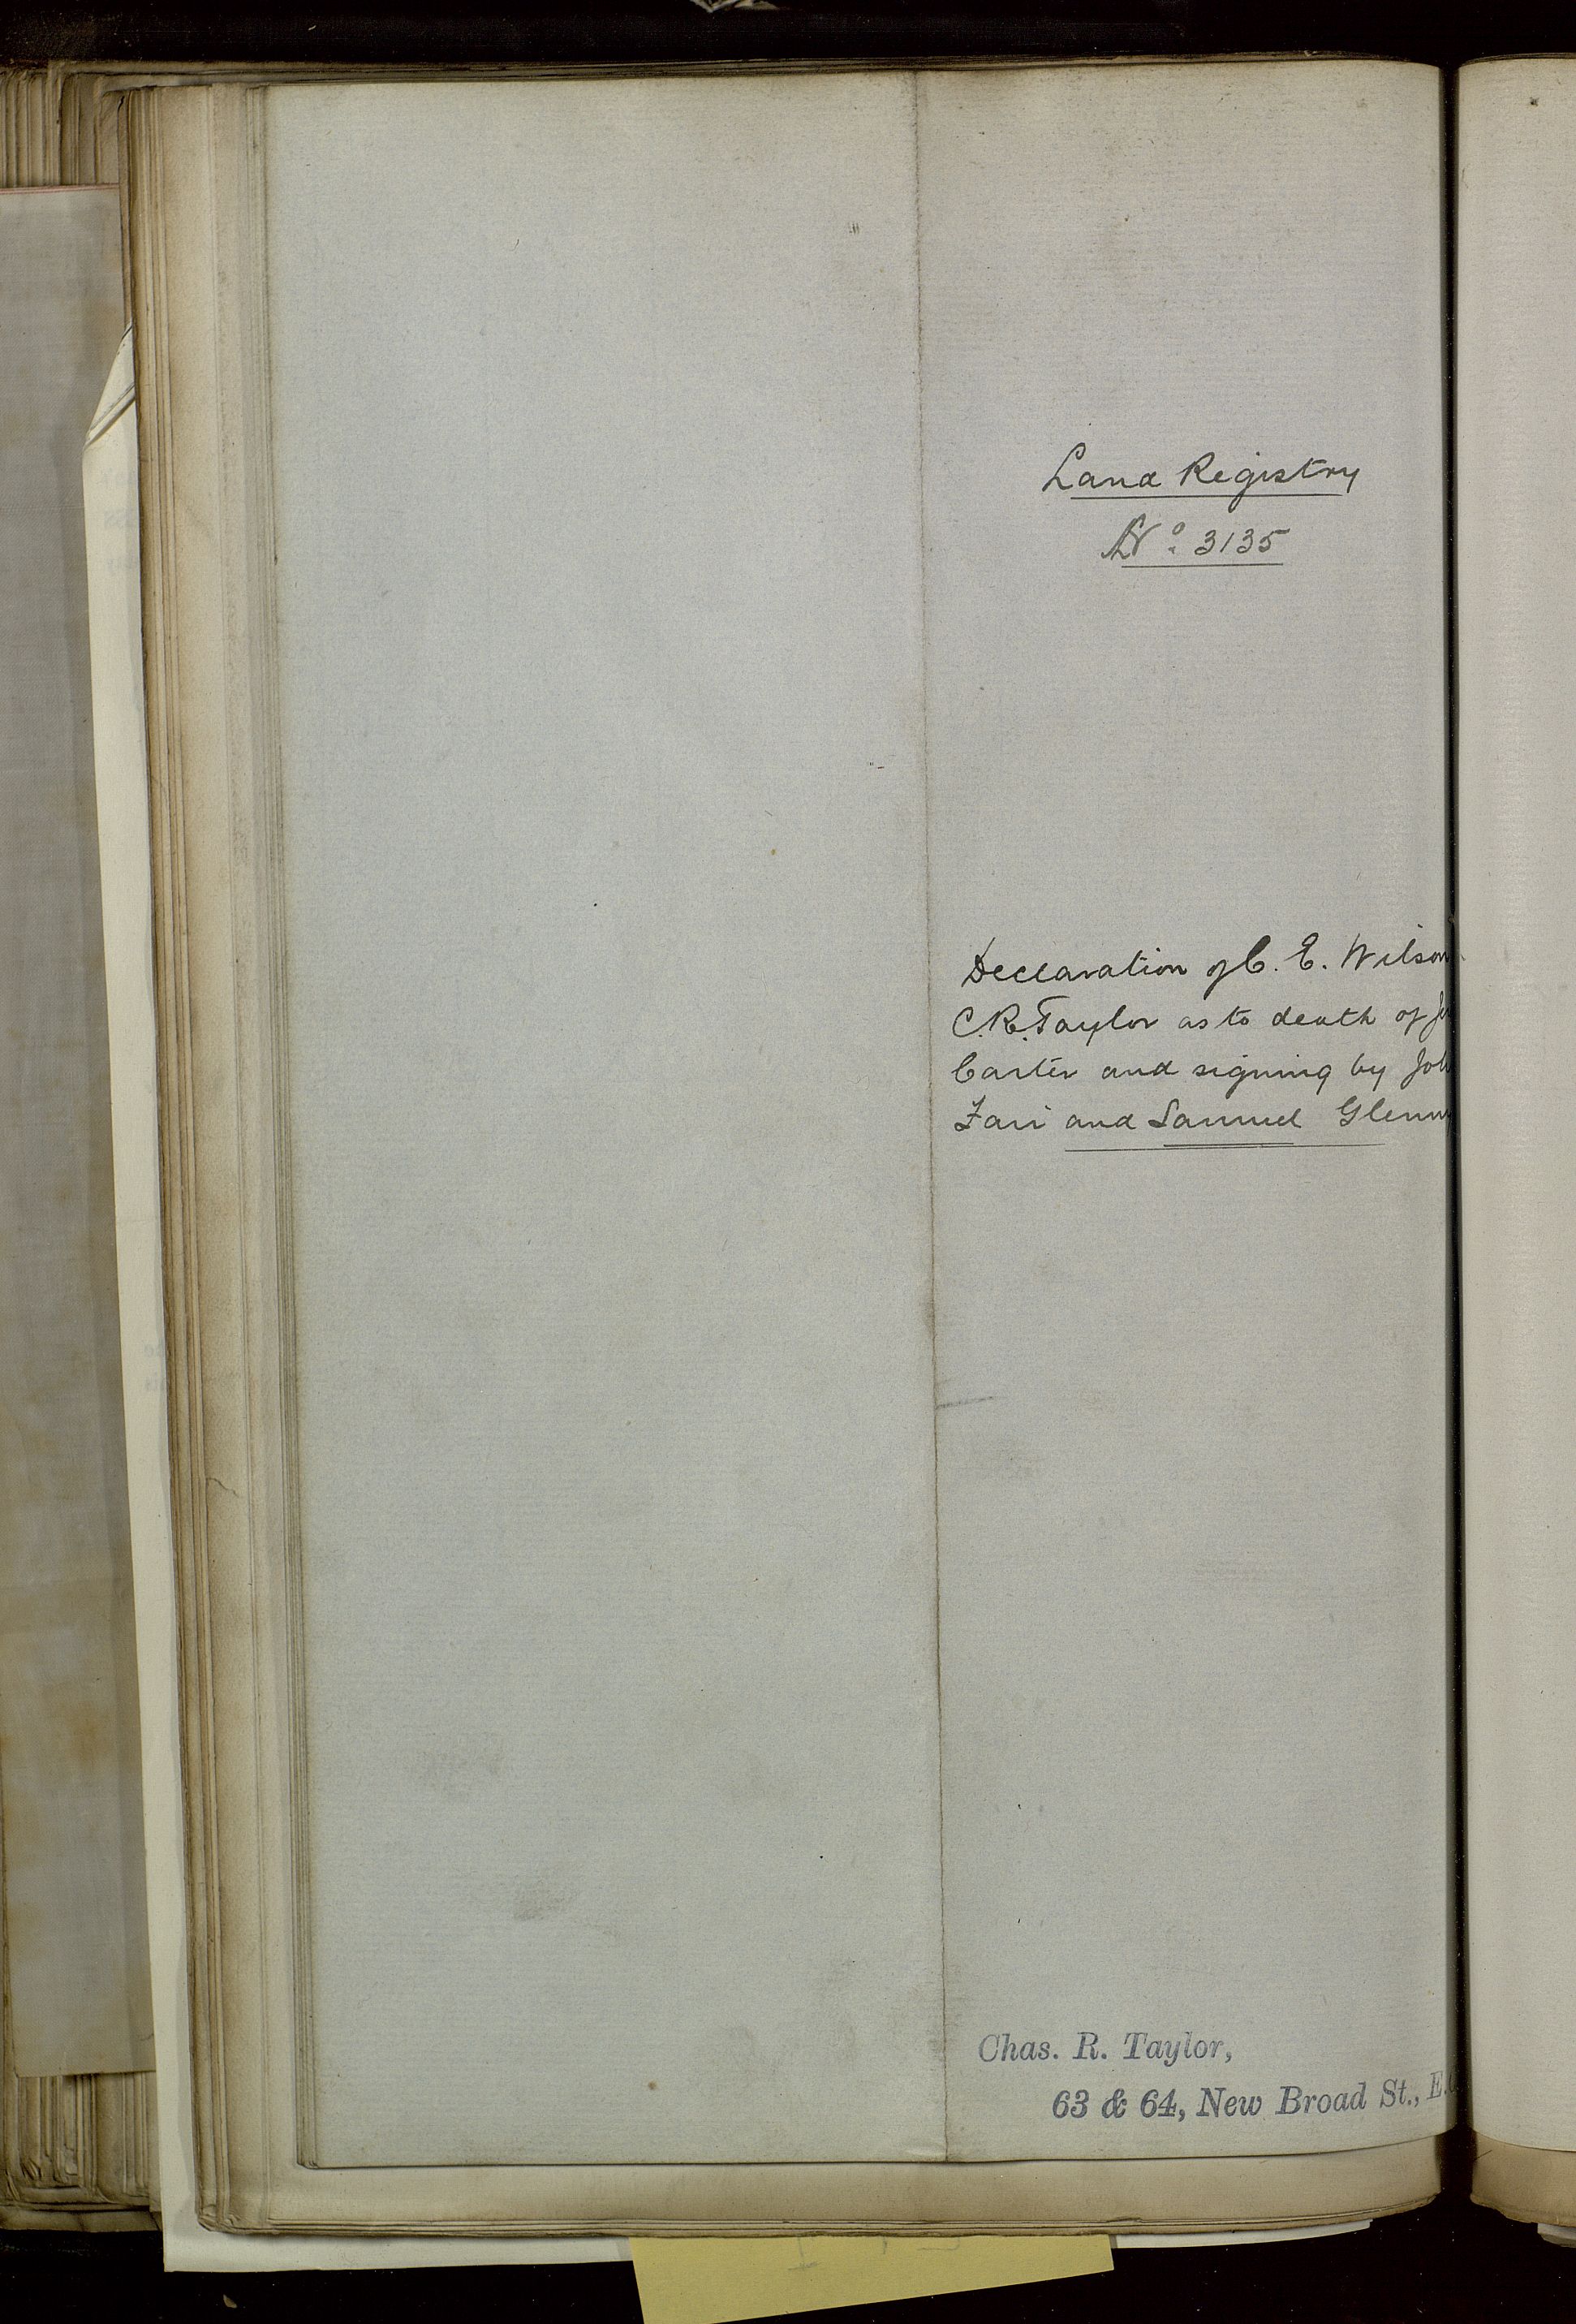 Land Registry
No. 3135
Declaration of C. E. Wilson
C. R. Taylor as to death of
Carter and signing by Joh
Farr and Samuel Glenn
Chas. R. Taylor,
63 & 64, New Broad St., E.